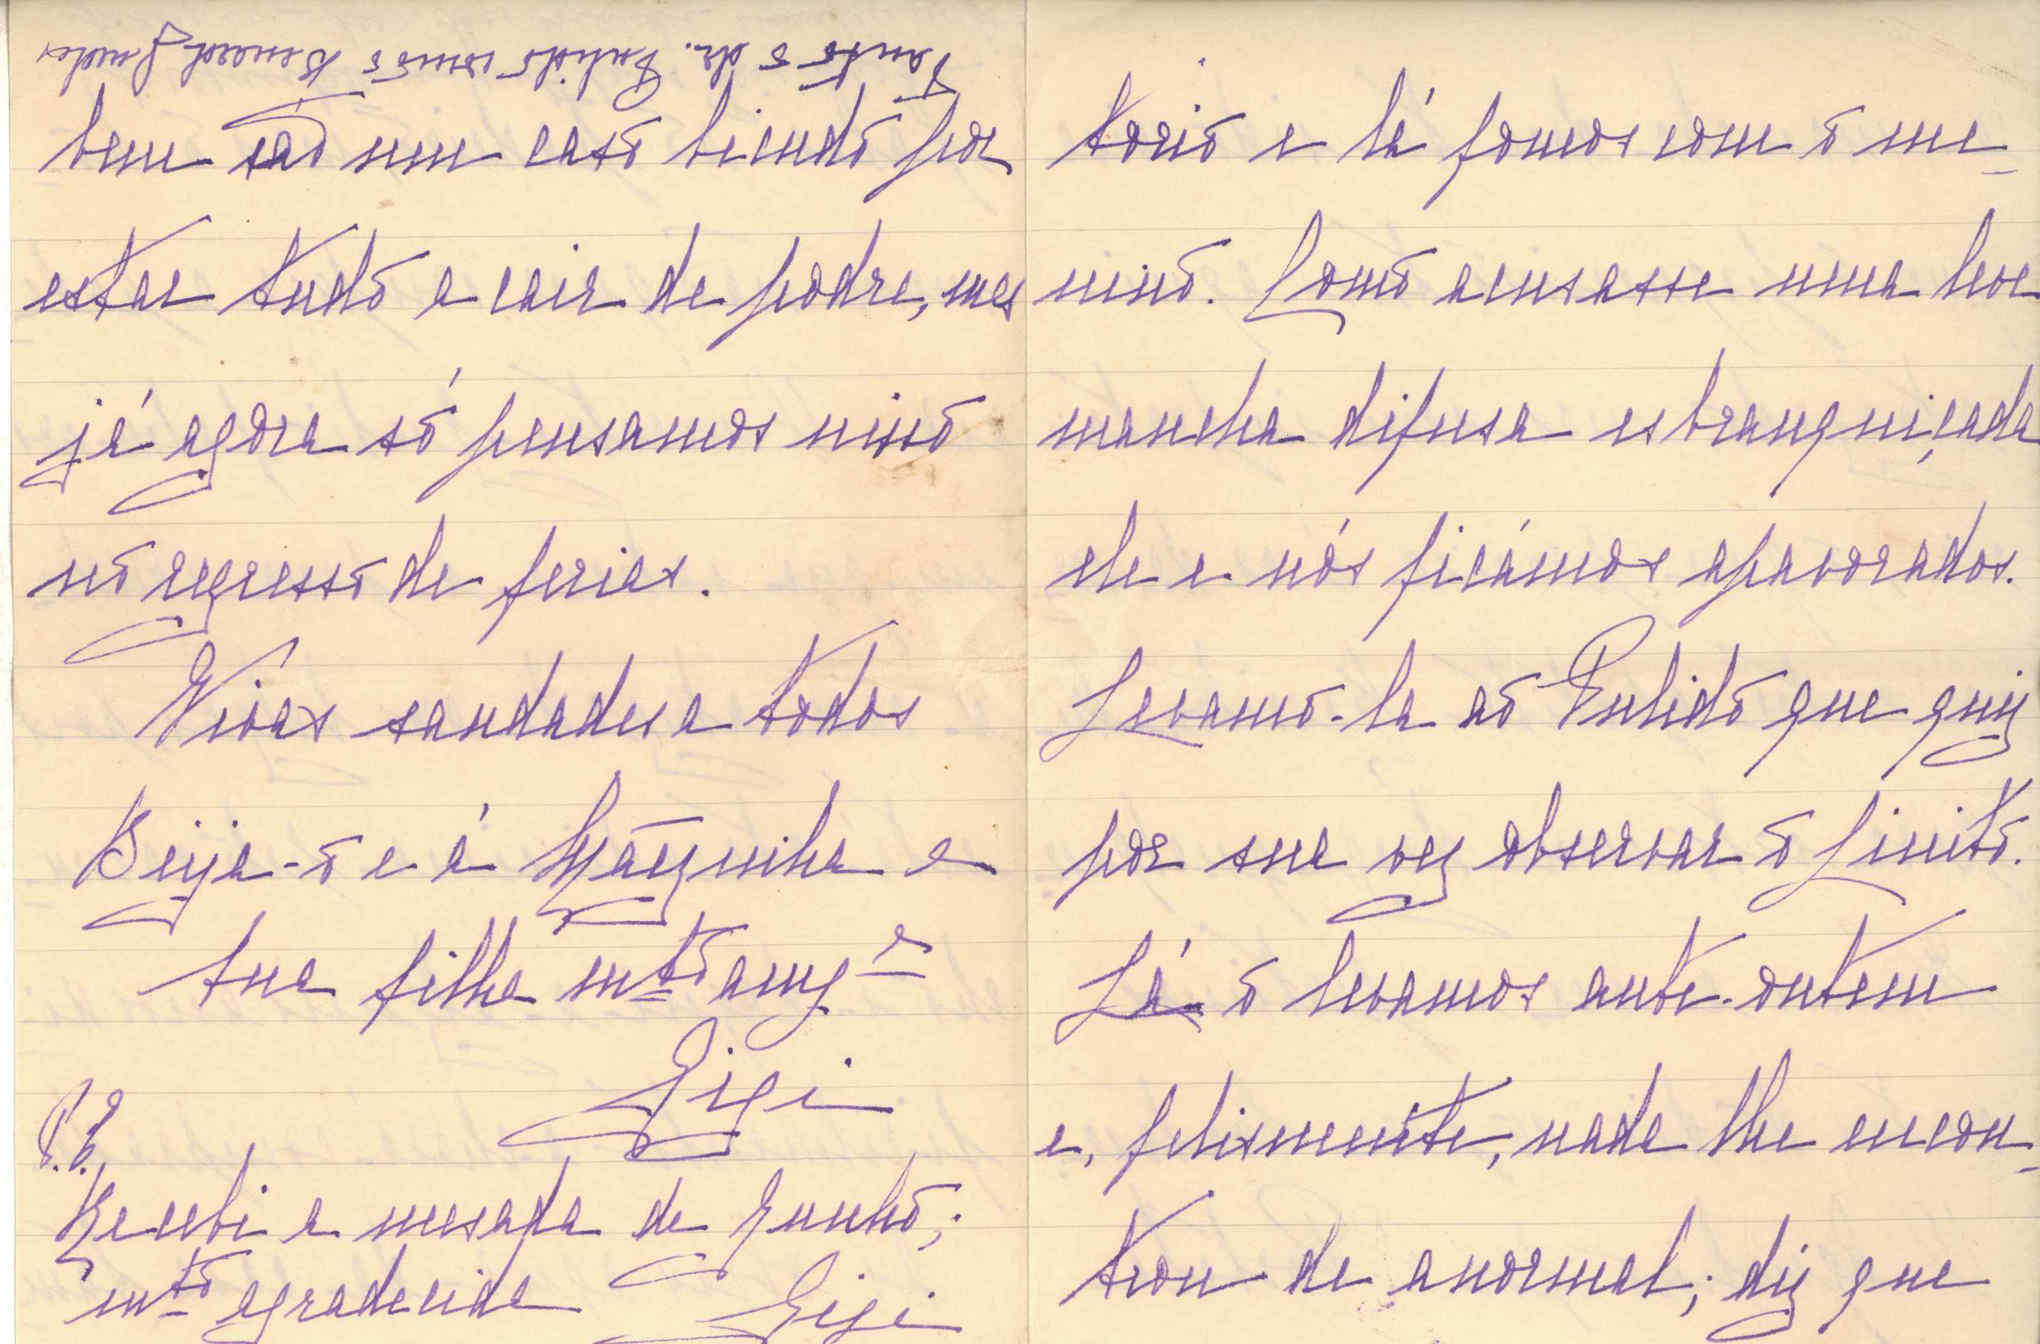 Tanto o dr. Pulido como o Benard Guedes
bem são um caso bicudo por
estar tudo a cair de podre, mas
já agora só pensamos nisso
no regresso de ferias.
Vivas saudades a todos
Beija-o e á Mãezinha a
tua filha mto amga
Gigi
P.S.
Recebi a mesada de Junho;
mto agradecida Gigi
torio e lá fomos com o me-
nino. Como acusasse uma leve
mancha difusa esbranquiçada
ele e nós ficámos apavorados.
Levamo-la ao Pulido que quiz
por sua vez observar o Finito.
Lá o levamos ante-ontem
e, felizmente, nada lhe encon-
trou de anormal; diz que